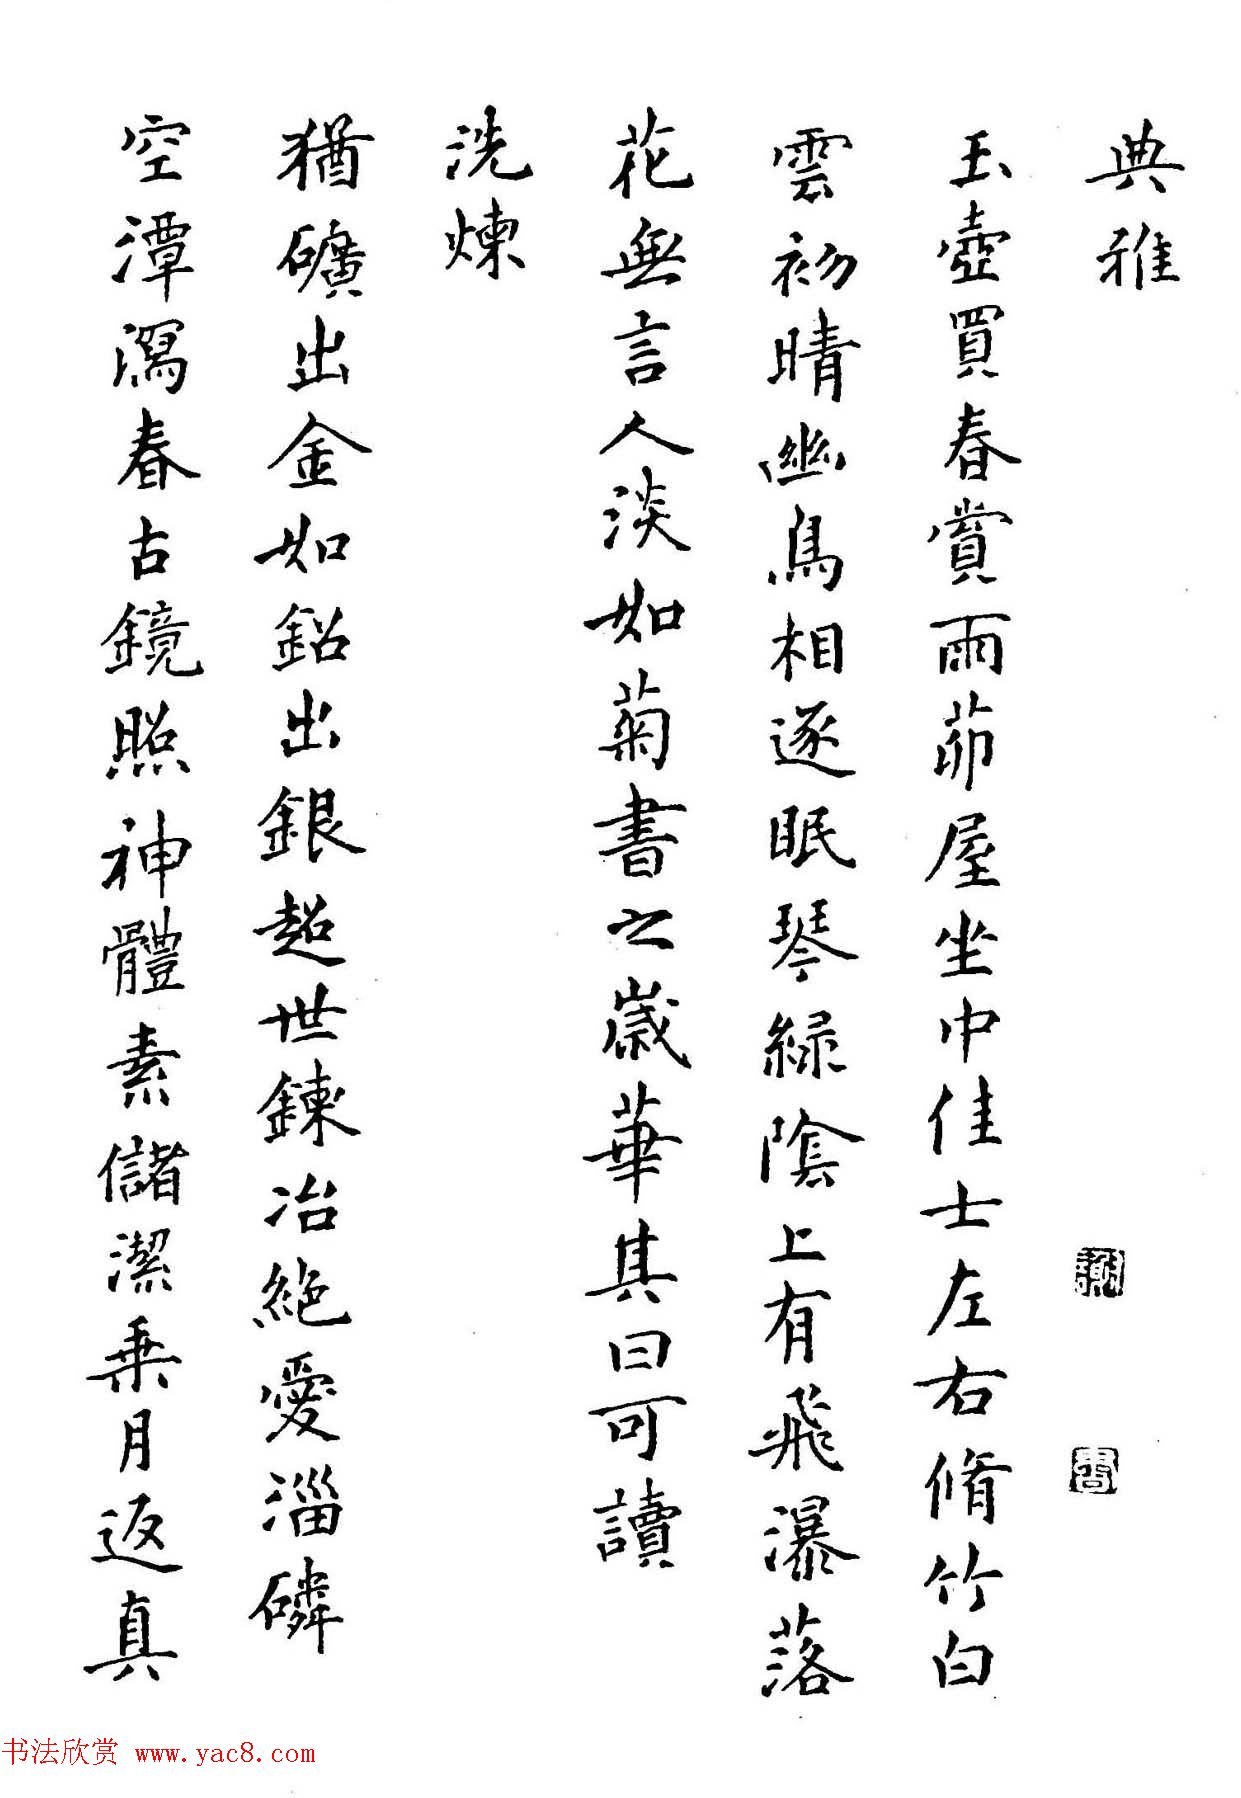 典雅
玉壺買春賞雨茆屋坐中佳士左右脩竹白
雲初晴幽鳥相逐眠琴綠陰上有飛瀑落
花無言人淡如菊書之歲華其曰可讀
洗煉
猶礦出金如鉛出銀超世鍊冶絕愛淄磷
空潭瀉春古鏡照神體素儲潔乗月返真
书法欣赏 www.yac8.com